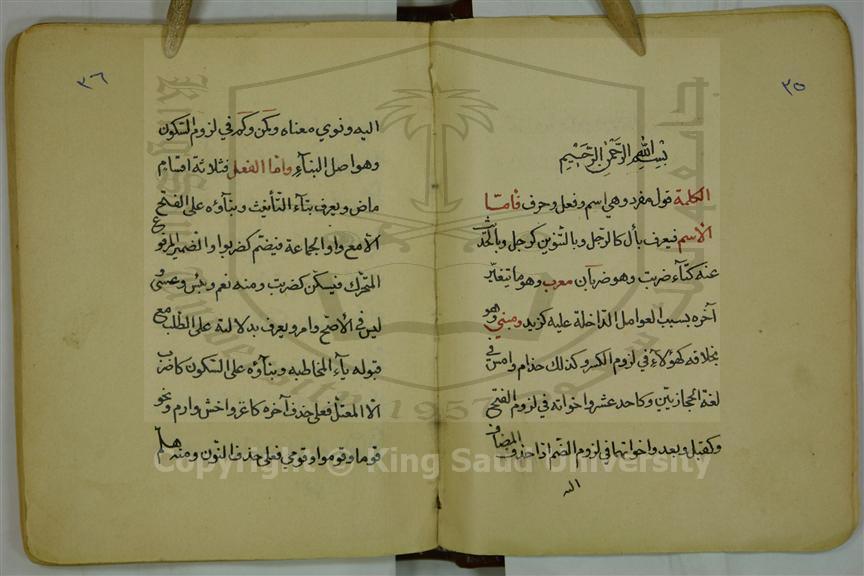 ٣٥
بسم الله الرحمن الرحيم
الكلمة قول مفرد وهي اسم وفعل وحرف فأمتا
الاسم فيعرف بأل كالرجل وبالتنوين كرجل وبالحديث
عنه كتآء ضربت وهو ضربان معرب وهو ما يتغير
آخره بسبب العوامل الداخلة عليه كزيد ومبني وهو
بخلافه كهؤلآء في لزوم الكسر وكذلك حذام وامس في
لغة الحجازيين وكاحد عشر واخواته في لزوم الفتح
وكقبل وبعد واخواتهما في لزوم الضم اذا حذف المضاف
اليه
٣٦
اليه ونوي معناه وكمن وكم في لزوم السكون
وهو اصل البنآء واما الفعل فثلاثة اقسام
ماض ويعرف بتآء التأنيث وبنآؤه على الفتح
الا مع واو الجماعة فيضم كضربوا والضمير المرفوع
المتحرك فيسكن كضربت ومنه نعم وبئس وعسى و
ليس في الأصح وامر ويعرف بدلالته على الطلب مع
قبوله يآء المخاطبه وبنآؤه على السكون كاضرب
الا المعتل فعلى حذف آخره كاغز واخش وارم ونحو
قوما وقوموا وقومى فعلى حذف النون ومنه هلم
Copyright © King Saud University
King Saud University
1957